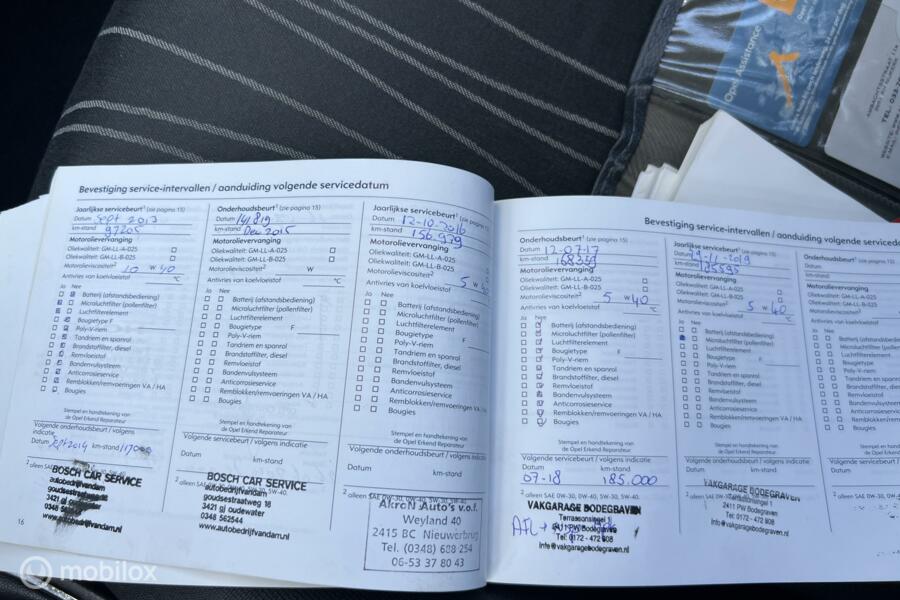 Bevestiging service-intervallen / aanduiding volgende servicedatum
Jaarlijkse servicebeurt¹ (zie pagina 15)
Datum Sept 2013
km-stand 97205
Motorolievervanging
Oliekwaliteit: GM-LL-A-025
Oliekwaliteit: GM-LL-B-025
Motorolieviscositeit² 10 W 40
Antivries van koelvloeistof °C
Ja Nee
Batterij (afstandsbediening)
Microluchtfilter (pollenfilter)
Luchtfilterelement
Bougietype F
Poly-V-riem
Tandriem en spanrol
Brandstoffilter, diesel
Remvloeistof
Bandenvulsysteem
Anticorrosieservice
Remblokken/remvoeringen VA / HA
Bougies
Stempel en handtekening van
de Opel Erkend Reparateur
Volgende onderhoudsbeurt / volgens
indicatie
Datum Sept 2014 km-stand
² alleen
BOSCH CAR SERVICE
autobedrijfvandam
goudsestraatweg 18
3421 gj oudewater
0348 562544
www.autobedrijfvandam.nl
16
Onderhoudsbeurt¹ (zie pagina 15)
Datum 141819
km-stand Dec 2015
Motorolievervanging
Oliekwaliteit: GM-LL-A-025
Oliekwaliteit: GM-LL-B-025
Motorolieviscositeit² W
Antivries van koelvloeistof °C
Ja Nee
Batterij (afstandsbediening)
Microluchtfilter (pollenfilter)
Luchtfilterelement
Bougietype F
Poly-V-riem
Tandriem en spanrol
Brandstoffilter, diesel
Remvloeistof
Bandenvulsysteem
Anticorrosieservice
Remblokken/remvoeringen VA / HA
Bougies
Stempel en handtekening van
de Opel Erkend Reparateur
Volgende servicebeurt / volgens indicatie
Datum km-stand
² alleen
BOSCH CAR SERVICE
autobedrijfvandam
goudsestraatweg 18
3421 gj oudewater
0348 562544
www.autobedrijfvandam.nl
Jaarlijkse servicebeurt¹ (zie pagina
Datum 12-10-2016
km-stand 156.939
Motorolievervanging
Oliekwaliteit: GM-LL-A-025
Oliekwaliteit: GM-LL-B-025
Motorolieviscositeit² 5 W
Antivries van koelvloeistof
Ja Nee
Batterij (afstandsbediening)
Microluchtfilter (pollenfilter)
Luchtfilterelement
Bougietype F
Poly-V-riem
Tandriem en spanrol
Brandstoffilter, diesel
Remvloeistof
Bandenvulsysteem
Anticorrosieservice
Remblokken/remvoeringen VA / HA
Bougies
Stempel en handtekening van
de Opel Erkend Reparateur
Volgende onderhoudsbeurt / volgens indicatie
Datum km-stand
² alleen SAE 0W-30, 0W-40, 5W-30, 5W-40.
AkroN Auto's v.o.f.
Weyland 40
2415 BC Nieuwerbrug
Tel. (0348) 688 254
06-53 37 80 43
Bevestiging service-intervallen / aanduiding volgende
Onderhoudsbeurt¹ (zie pagina 15)
Datum 12-07-17
km-stand
Motorolievervanging
Oliekwaliteit: GM-LL-A-025
Oliekwaliteit: GM-LL-B-025
Motorolieviscositeit² 5 W 40
Antivries van koelvloeistof °C
Ja Nee
Batterij (afstandsbediening)
Microluchtfilter (pollenfilter)
Luchtfilterelement
Bougietype F
Poly-V-riem
Tandriem en spanrol
Brandstoffilter, diesel
Remvloeistof
Bandenvulsysteem
Anticorrosieservice
Remblokken/remvoeringen VA / HA
Bougies
Stempel en handtekening van
de Opel Erkend Reparateur
Volgende servicebeurt / volgens indicatie
Datum km-stand
07-18 185.000
² alleen SAE 0W-30, 0W-40, 5W-30, 5W-40.
VAKGARAGE BODEGRAVEN
Terrasonsingel 1
2411 PW Bodegraven
Tel: 0172 - 472 808
Info@vakgaragebodegraven.nl
Jaarlijkse servicebeurt¹ (zie pagina 15)
Datum 29-11-2019
km-stand 185595
Motorolievervanging
Oliekwaliteit: GM-LL-A-025
Oliekwaliteit: GM-LL-B-025
Motorolieviscositeit² 5 W 40
Antivries van koelvloeistof °C
Ja Nee
Batterij (afstandsbediening)
Microluchtfilter (pollenfilter)
Luchtfilterelement
Bougietype F
Poly-V-riem
Tandriem en spanrol
Brandstoffilter, diesel
Remvloeistof
Bandenvulsysteem
Anticorrosieservice
Remblokken/remvoeringen VA / HA
Bougies
Stempel en handtekening van
de Opel Erkend Reparateur
Volgende onderhoudsbeurt / volgens indicatie
Datum km-stand
VAKGARAGE BODEGRAVEN
Terrasonsingel 1
2411 PW Bodegraven
Tel: 0172 - 472 808
Info@vakgaragebodegraven.nl
Onderhoudsbeurt
Datum
km-stand
Motorolievervanging
Oliekwaliteit: GM-LL-A-025
Oliekwaliteit: GM-LL-B-025
Motorolieviscositeit²
Antivries van koelvloeistof
Ja Nee
Batterij
Microluchtfilter
Luchtfilterelement
Bougietype
Poly-V-riem
Tandriem en
Brandstoffilter
Remvloeistof
Bandenvulsysteem
Anticorrosieservice
Remblokken
Bougies
Stempel en
de Opel
Volgende servicebeurt
Datum
² alleen SAE
Opel Assistance
mobilox